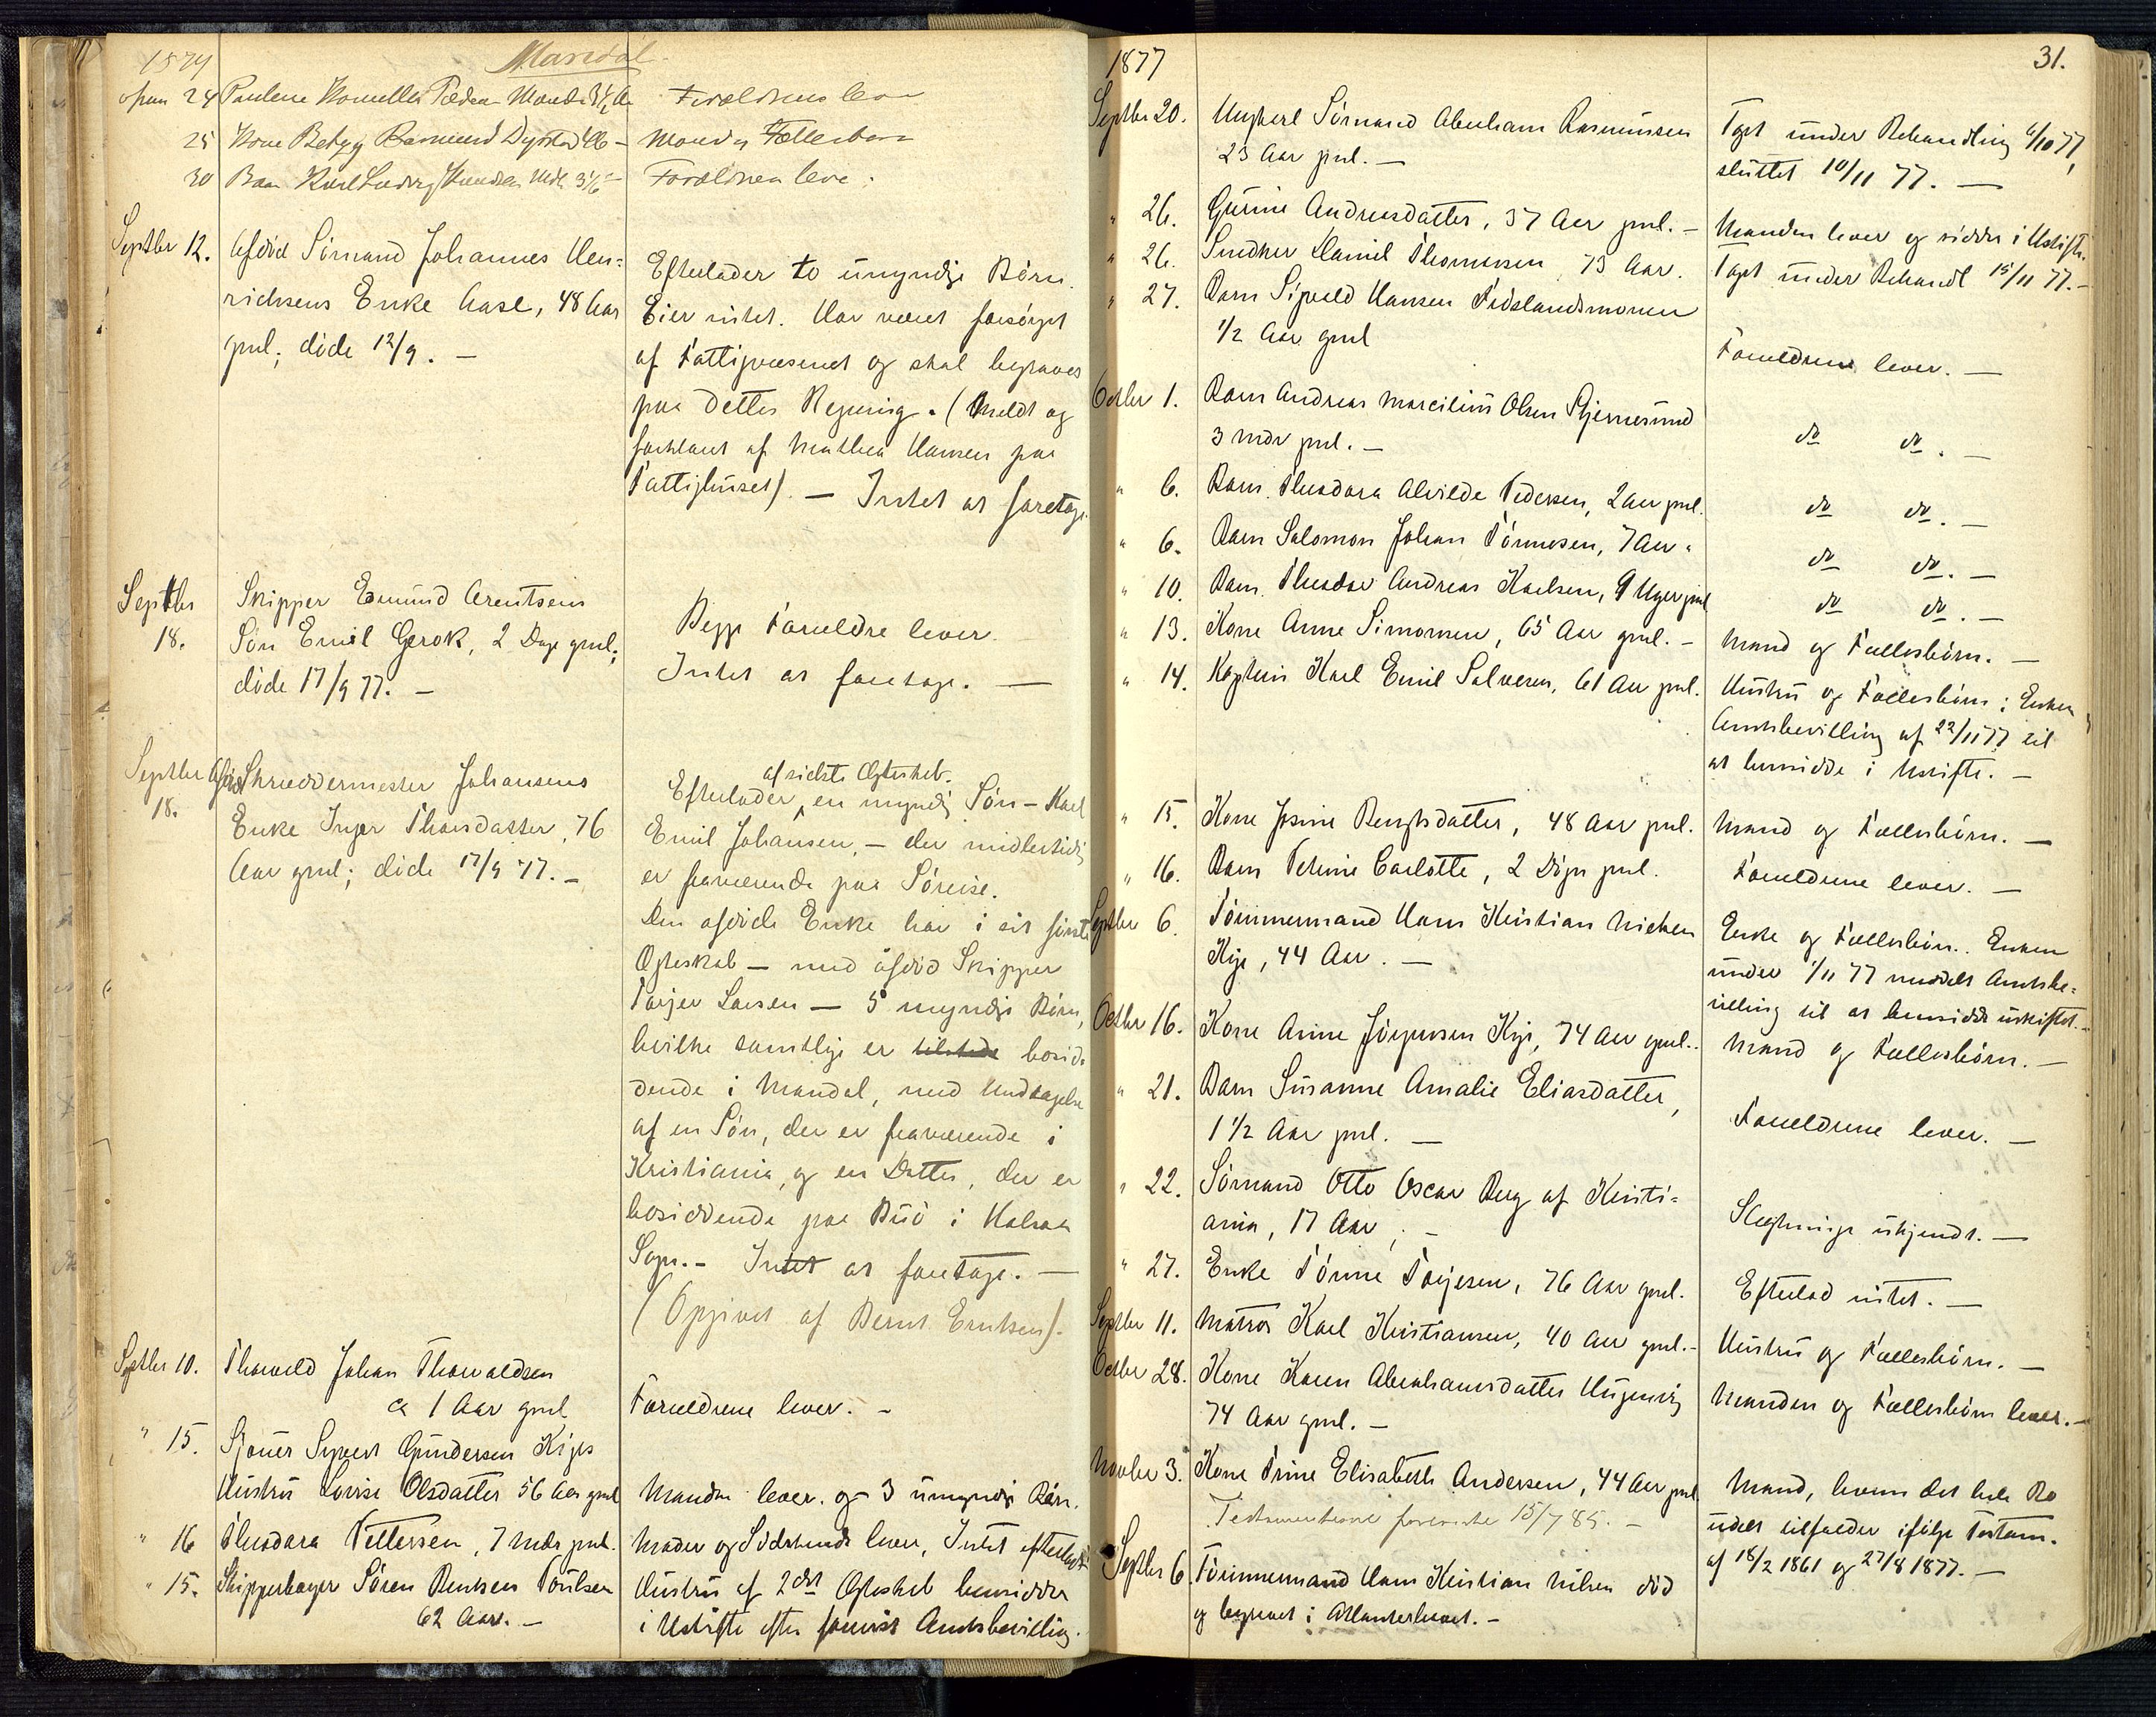 Mandal
Paulene Kornellia Pedersen Mandal 3½ A
Forældrene leve
25 Kone Betzy Rasmund Dyrstad 46 -
Mand og Fællesbørn
30 Barn Karl Ludvig Knudsen Mdl 3 1/6
Forældren leve.
Septbr 12. Afdød Sömand Johannes Hen=
richsens Enke Aase, 48 Aar
gml; døde 12/9. —
Efterlader to umyndige Börn.
Eier intet. Har været forsörget
af Fattigvæsenet og skal begraves
paa dettes Regning. (Meldt og
forklaret af Mathea Hansen paa
Fattighuset). — Intet at foretage.
Septbr 18. Skipper Edmund Arentsens
Sön Emil Gerok, 2 Dage gml;
døde 17/9 77. —
Begge Forældre lever.
Intet at foretage. —
Septbr 18. Afdød Skræddermester Johansens
Enke Inger Thorsdatter, 76
Aar gml; döde 17/9 77. —
af sidste Ægteskab.
Efterlader en myndig Sön — Karl
Emil Johansen, — der midlertidig
er fraværende paa Söreise.
Den afdöde Enke har i sit förste
Ægteskab — med afdöd Skipper
Torjer Larsen — 5 myndige Börn,
hvilke samtlige er tilstede bosid=
dende i Mandal, med Undtagelse
af en Sön, der er fraværende i
Kristiania, og en Datter, der er
bosiddende paa Buö i Halsaa
Sogn. — Intet at foretage. —
(Opgivet af Bernt Erntsen).
Septbr 10. Thorvald Johan Thorvaldsen
ca 1 Aar gml
Forældrene lever. —
" 15. Sjouer Sivert Gundersen Kiges
Hustru Lovise Olsdatter 56 Aar gml
Manden lever og 3 umyndige Börn.
" 16 Theodora Pettersen, 7 Mdr gml.
Moder og Södskende lever, Intet efterladt.
" 15. Skipperborger Sören Berntsen Poulsen
62 Aar. —
Hustru af 2det Ægteskab hensidder
i Uskifte efter Amtsbevilling.
1877
31.
Septbr 20. Ungkarl Sömand Abraham Rasmussen
23 Aar gml. —
Taget under Behandling 6/10 77,
sluttet 10/11 77. —
" 26. Gurine Andreasdatter, 37 Aar gml. —
Manden lever og sidder i Uskifte.
" 26. Snedker Daniel Thomassen 73 Aar.
Taget under Behandl 15/11 77. —
" 27. Barn Sigvald Hansen Fidslandsmonen
1/2 Aar gml
Forældrene lever. —
Octbr 1. Barn Andreas Marcelius Olsen Stjernesund
3 Mdr gml. —
do do. —
" 6. Barn Theodora Alvilde Pedersen, 2 Aar gml.
do do. —
" 6. Barn Salomon Johan Tönnesen, 7 Aar "
do do. —
" 10. Barn Theodor Andreas Karlsen, 9 Uger gml
do do. —
" 13. Kone Anne Simonsen, 65 Aar gml. —
Mand og Fællesbörn. —
" 14. Kaptein Karl Emil Salvesen, 61 Aar gml.
Hustru og Fællesbörn; Enken
Amtsbevilling af 22/11 77 til
at hensidde i Uskifte. —
" 15. Kone Josine Bengtsdatter, 48 Aar gml.
Mand og Fællesbörn. —
" 16. Barn Petrine Carlotte, 2 Döge gml.
Forældrene lever. —
Septbr 6. Tömmermand Hans Kristian Nielsen
Kige, 44 Aar. —
Enke og Fællesbörn. Enken
under 1/11 77 meddelt Amtsbe=
villing til at hensidde uskiftet. —
Octbr 16. Kone Anne Jörgensen Kige, 74 Aar gml.
Mand og Fællesbörn. —
" 21. Barn Susanne Amalie Eliasdatter,
1 1/2 Aar gml. —
Forældrene lever. —
" 22. Sömand Otto Oscar Berg af Kristi=
ania, 17 Aar. —
Slægtninge ukjendt. —
" 27. Enke Tönne Torjesen, 76 Aar gml.
Efterlod intet. —
Septbr 11. Matros Karl Kristiansen, 40 Aar gml. —
Hustru og Fællesbörn. —
Octbr 28. Kone Karen Abrahamsdatter Uigenvig
74 Aar gml. —
Manden og Fællesbörn lever. —
Novbr 3. Kone Trine Elisabeth Andersen, 44 Aar gml
Testamenterne foreviste 15/7 85. —
Mand, hvem det hele Bo
udelt tilfalder ifölge Testam.
af 18/2 1861 og 27/8 1877. —
Septbr 6. Tömmermand Hans Kristian Nilsen död
og begravet i Atlanterhavet. —